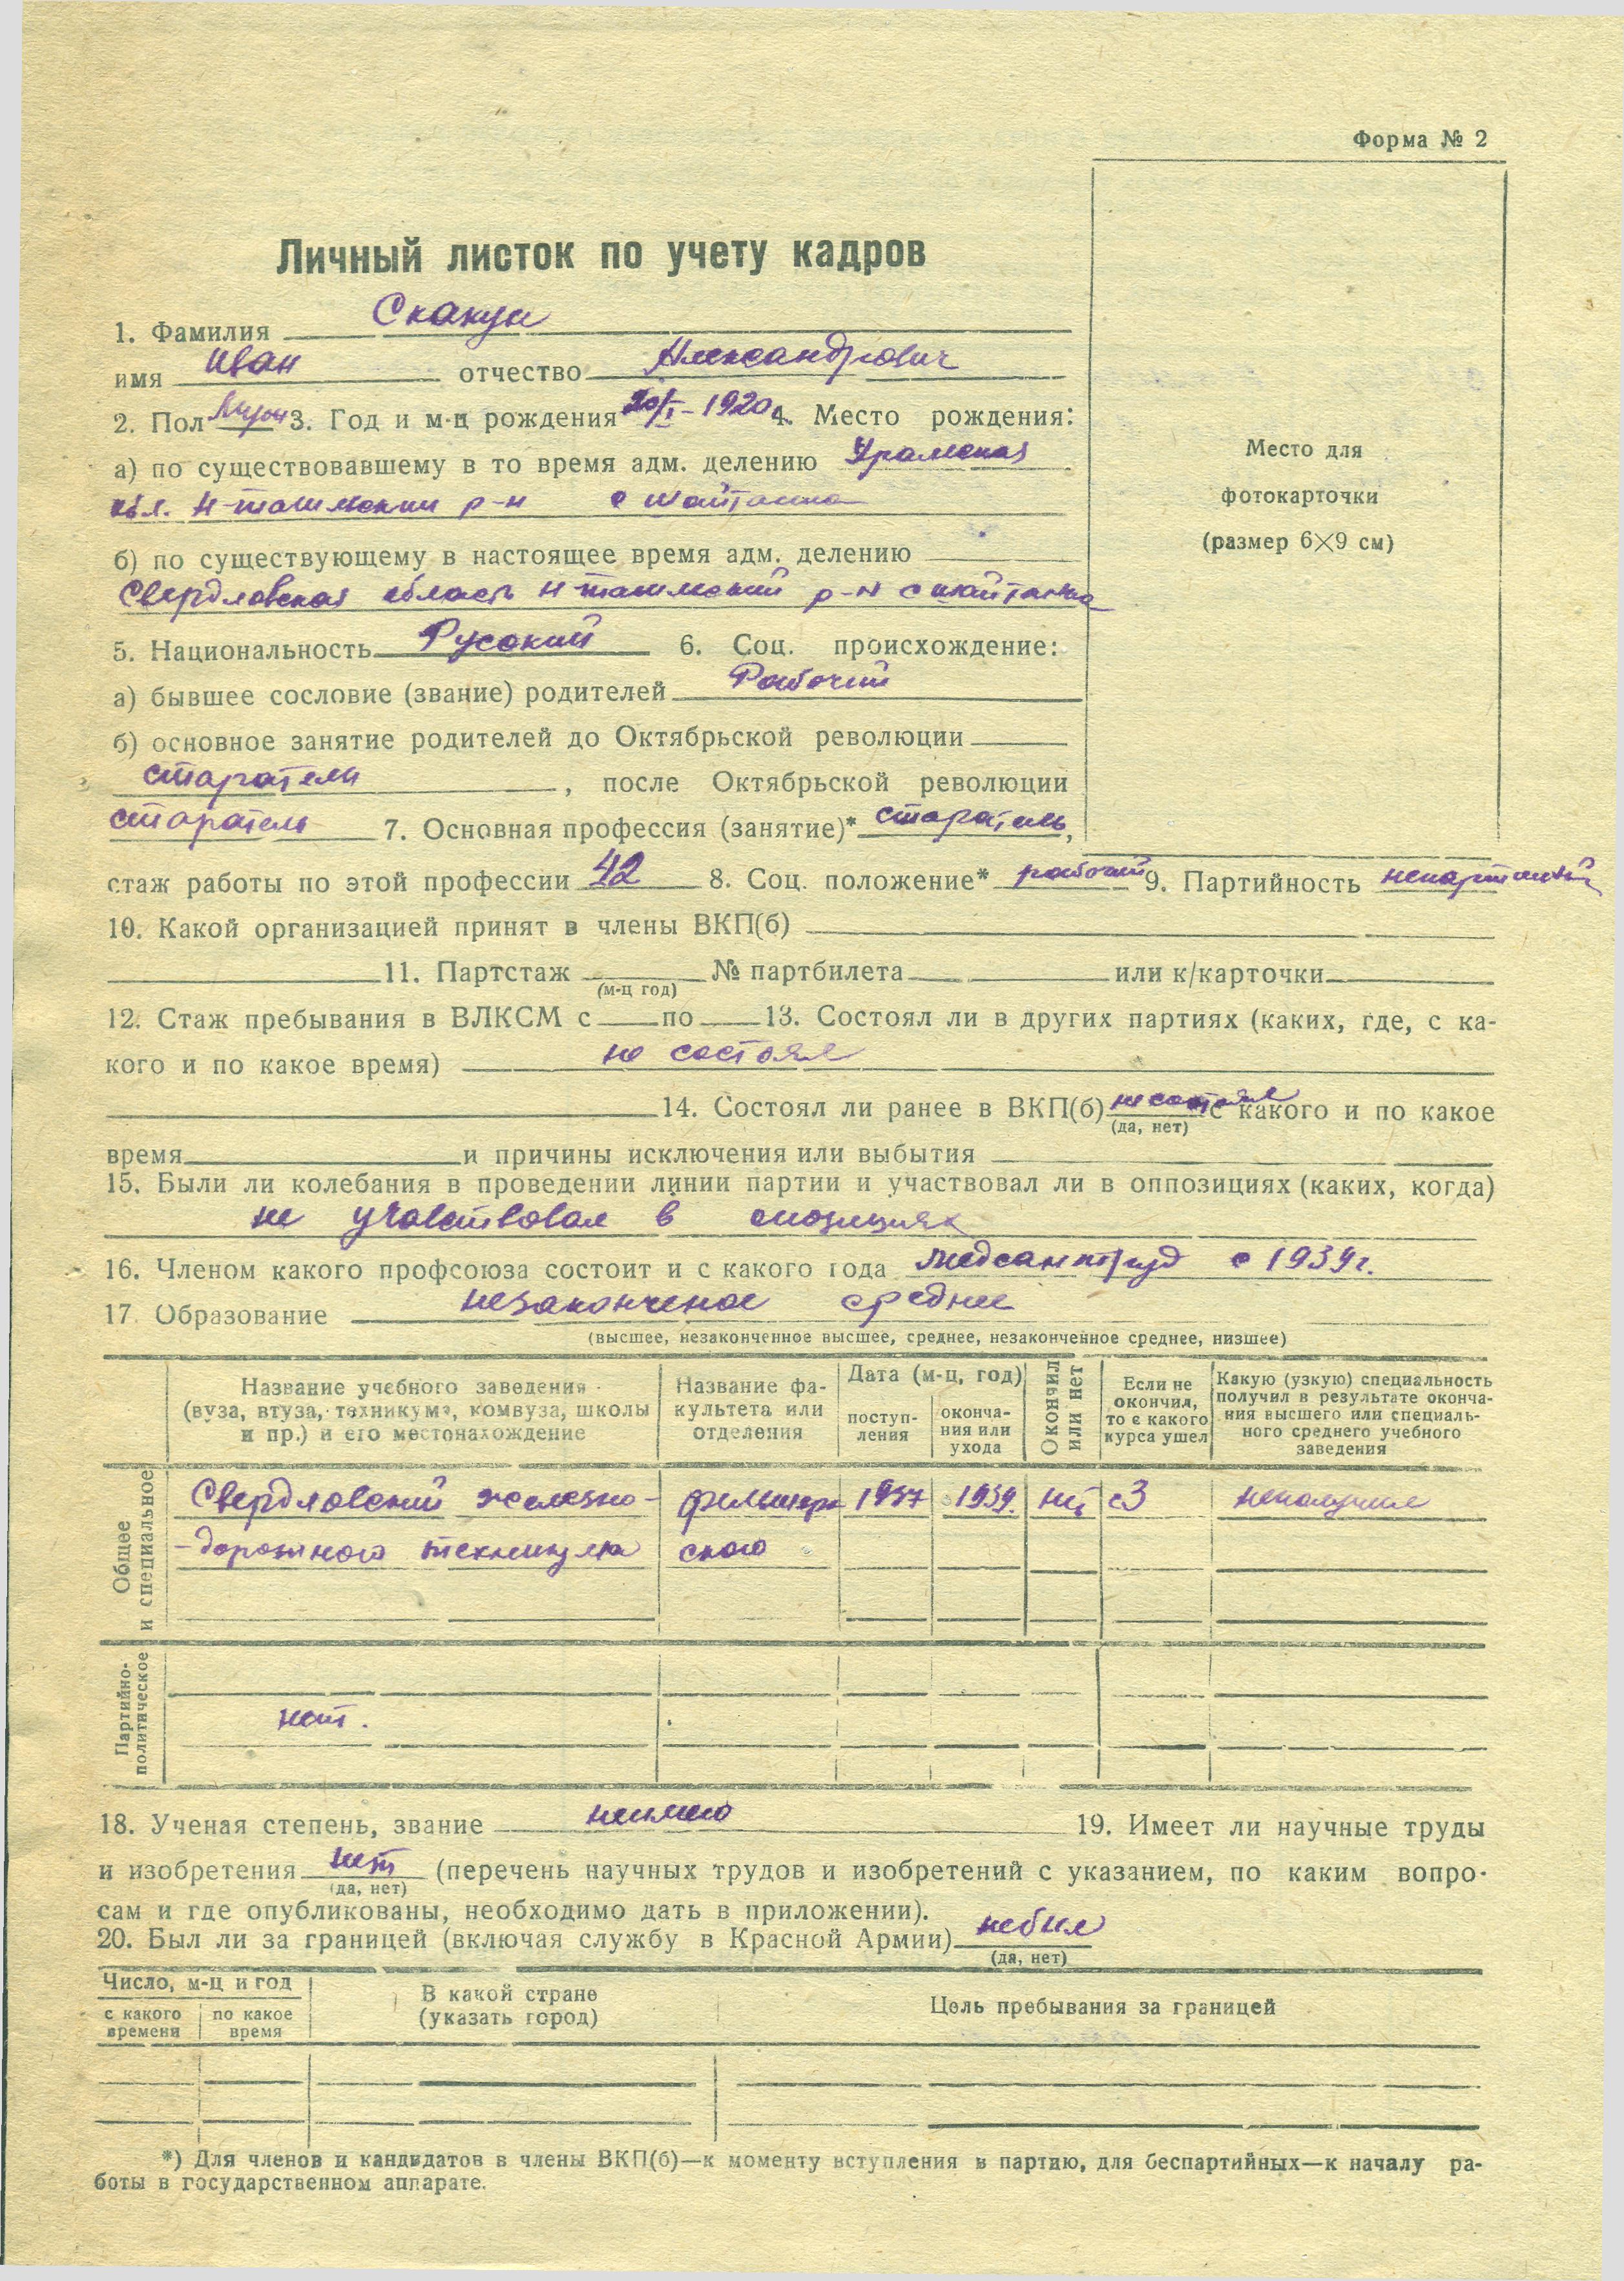 Форма № 2
Личный листок по учету кадров
Место для
фотокарточки
(размер 6×9 см)
1. Фамилия Скакун
имя Иван отчество Александрович
2. Пол Муж 3. Год и м-ц рождения 20/I-1920 4. Место рождения:
а) по существовавшему в то время адм. делению Уральская
обл. Н-тагильский р-н с шайтанка
б) по существующему в настоящее время адм. делению
Свердловская область Н-тагильский р-н с шайтанка
5. Национальность Русский 6. Соц. происхождение:
а) бывшее сословие (звание) родителей Рабочий
б) основное занятие родителей до Октябрьской революции
старатели, после Октябрьской революции
старатель 7. Основная профессия (занятие)* старатель,
стаж работы по этой профессии 42 8. Соц. положение* рабочий 9. Партийность непартийный
10. Какой организацией принят в члены ВКП(б)
11. Партстаж № партбилета или к/карточки
(м-ц год)
12. Стаж пребывания в ВЛКСМ с по 13. Состоял ли в других партиях (каких, где, с ка-
кого и по какое время) не состоял
14. Состоял ли ранее в ВКП(б) не состоял с какого и по какое
(да, нет)
время и причины исключения или выбытия
15. Были ли колебания в проведении линии партии и участвовал ли в оппозициях (каких, когда)
не участвовал в опозициях
16. Членом какого профсоюза состоит и с какого года медсантруд с 1939г.
17 Образование незаконченое средние
(высшее, незаконченное высшее, среднее, незаконченное среднее, низшее)
Название учебного заведения (вуза, втуза, техникума, комвуза, школы и пр.) и его местонахождение
Название факультета или отделения
Дата (м-ц, год)
поступ-
ления
оконча-
ния или
ухода
Окончил
или нет
Если не
окончил,
то с какого
курса ушел
Какую (узкую) специальность
получил в результате оконча-
ния высшего или специаль-
ного среднего учебного
заведения
Общее
и специальное
Свердловский железно- фельшер 1937 1939. нет с3 неполучил
-дорожного техникума ского
Партийно-
политическое
нет.
18. Ученая степень, звание неимею 19. Имеет ли научные труды
и изобретения нет (перечень научных трудов и изобретений с указанием, по каким вопро-
(да, нет)
сам и где опубликованы, необходимо дать в приложении).
20. Был ли за границей (включая службу в Красной Армии) небыл
(да, нет)
Число, м-ц и год
с какого
времени
по какое
время
В какой стране
(указать город)
Цель пребывания за границей
*) Для членов и кандидатов в члены ВКП(б)—к моменту вступления в партию, для беспартийных—к началу ра-
боты в государственном аппарате.